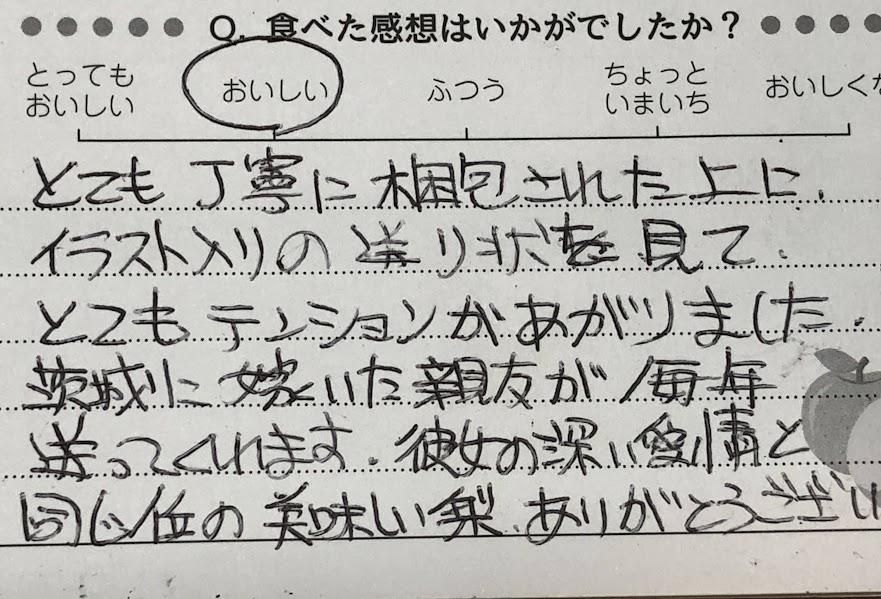 Q. 食べた感想はいかがでしたか？
とっても
おいしい
おいしい
ふつう
ちょっと
いまいち
おいしくな
とても丁寧に梱包された上に、
イラスト入りの送り状を見て、
とてもテンションがあがりました。
茨城に嫁いだ親友が毎年
送ってくれます。彼女の深い愛情と
同じ位の美味しい梨、ありがとうござい